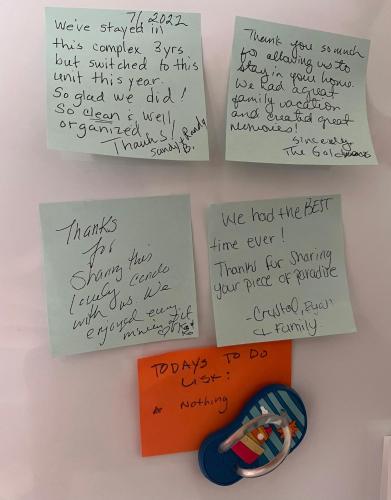 7/2021
We've stayed in
this complex 3yrs
but switched to this
unit this year.
So glad we did!
So clean & well
organized
Thanks!
Sandy + Randy
B.
Thank you so much
for allowing us to
stay in your home.
We had a great
family vacation
and created great
memories!
Sincerely
The
Thanks
for
Sharing this
lovely condo
with us. We
enjoyed every
minute of it
We had the BEST
time ever!
Thanks for sharing
your piece of paradise
-Crystal, Ryan
& Family
TODAYS TO DO
LIST:
Nothing